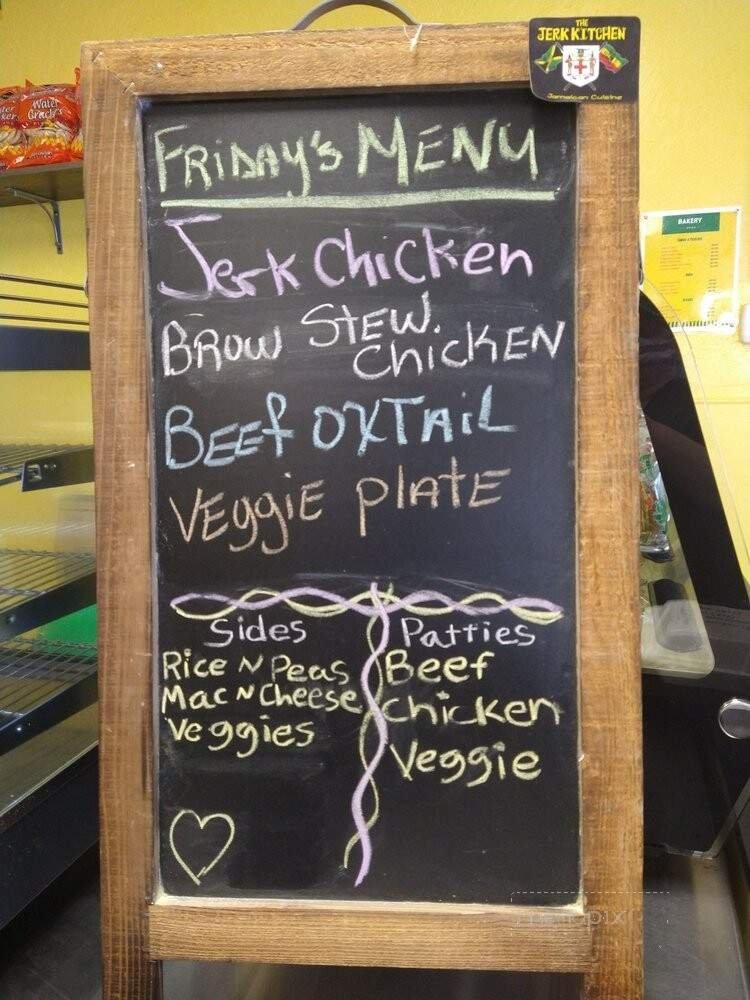 THE
JERK KITCHEN
Jamaican Cuisine
Water
Crackers
BAKERY
FRIDAY'S MENU
Jerk Chicken
BROW STEW.
ChickEN
BEEf OXTAiL
VEggiE plATE
Sides
Rice N Peas
Mac N Cheese
Veggies
Patties
Beef
Chicken
Veggie